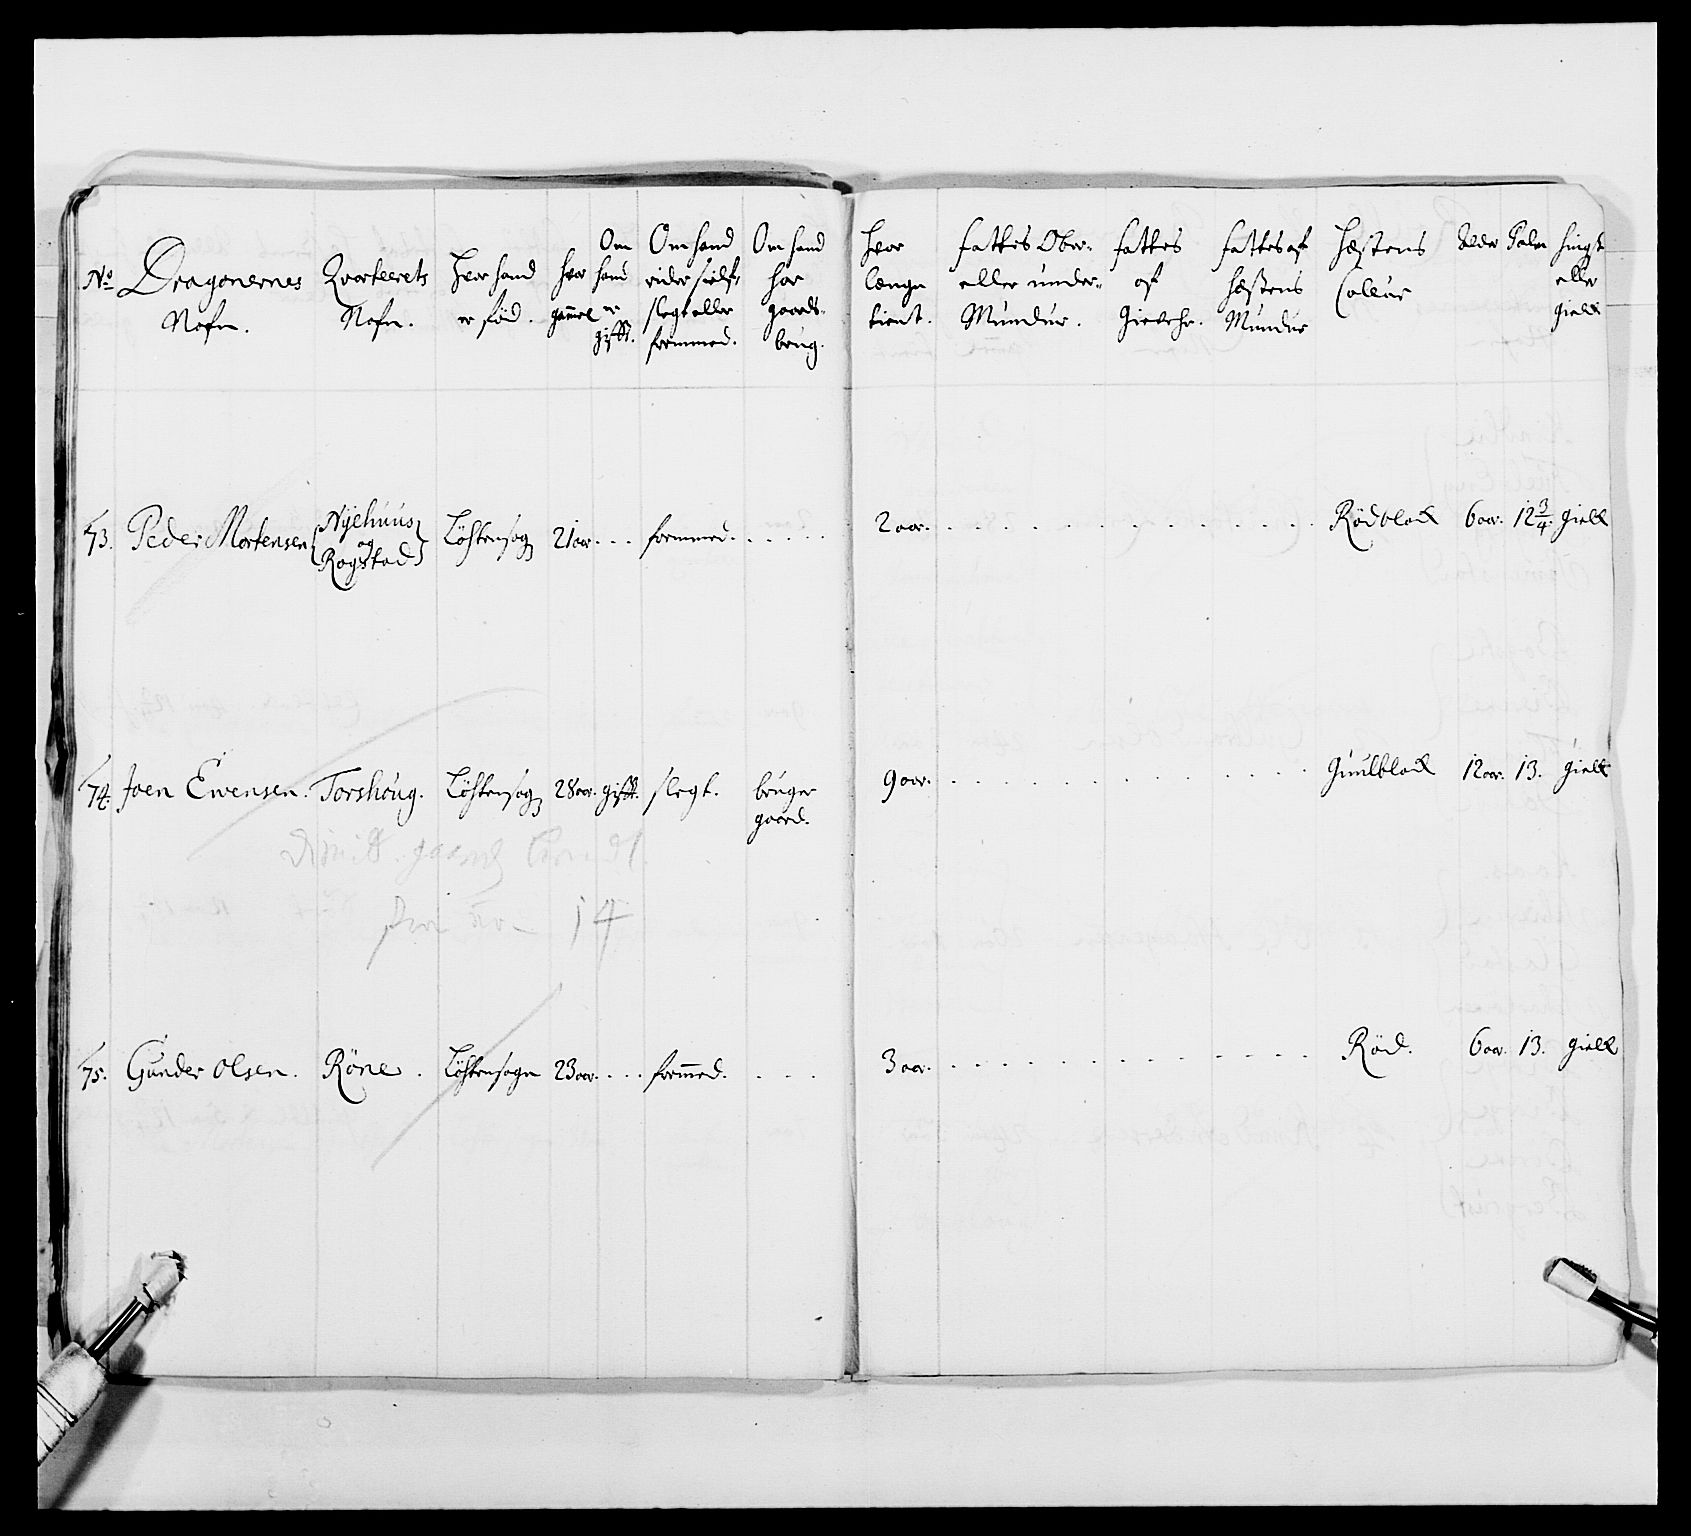 No Dragonernes Nafn. Qvarteerets Nafn. hvor hand er föd. hvor gammel Om hand er gifft. Om hand rider sielf, slegt eller fremmed. Om hand har gaards-brug. hvor længe tient. fattes Ober- eller under-Mundur. fattes af Giewehr. fattes af hæstens Mundur hæstens Colleur Alder Palm hingst eller gield
73. Peder Mortensen {Nÿehuus og Rogstad} Löhtensog 21 aar. . . . fremmed. . . . . . 2 aar. . . . . Rödblack 6 aar. 12 3/4. gield
74. Joen Evensen. Torshoug. Löhtensog 28 aar. gifft. slegt. bruger gaard. 9 aar. . . . . Guulblack 12 aar. 13. gield
14
75. Gunder Olsen. Röne. Löhtensogn 23 aar. . . . fremmed. . . . 3 aar. . . . . Röd. 6 aar. 13. gield